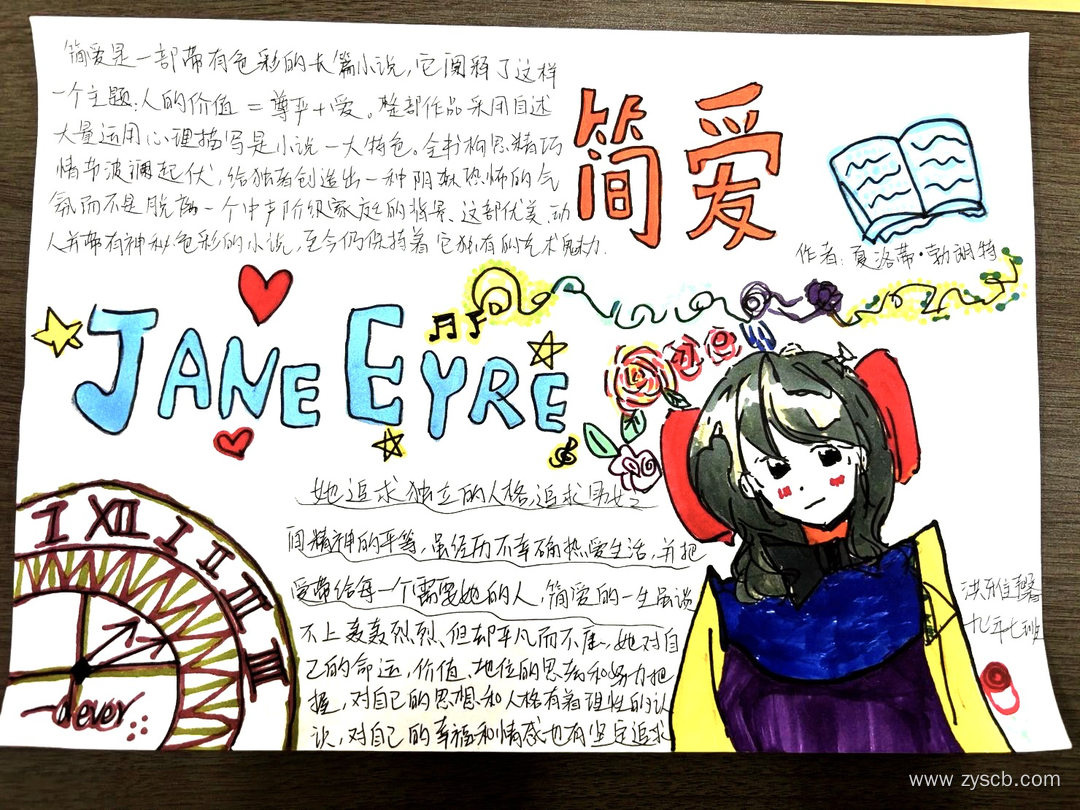 简爱是一部带有色彩的长篇小说，它阐释了这样
一个主题：人的价值＝尊严＋爱。整部作品采用自述
大量运用心理描写是小说一大特色。全书构思精巧
情节波澜起伏，给读者创造出一种阴森恐怖的气
氛而不是脱离一个中产阶级家庭的背景、这部优美、动
人并带有神秘色彩的小说，至今仍保持着它独有的艺术魅力.
简爱
作者：夏洛蒂·勃朗特
JANE EYRE
她追求独立的人格，追求男女之
间精神的平等，虽经历不幸确热爱生活，并把
爱带给每一个需要她的人，简爱的一生虽谈
不上轰轰烈烈、但却平凡而不庸~她对自
己的命运，价值、地位的思考和努力把
握，对自己的思想和人格有着理性的认
识，对自己的幸福和情感也有坚定追求
XI XII I II III IIII
九年七班
www.zyscb.com